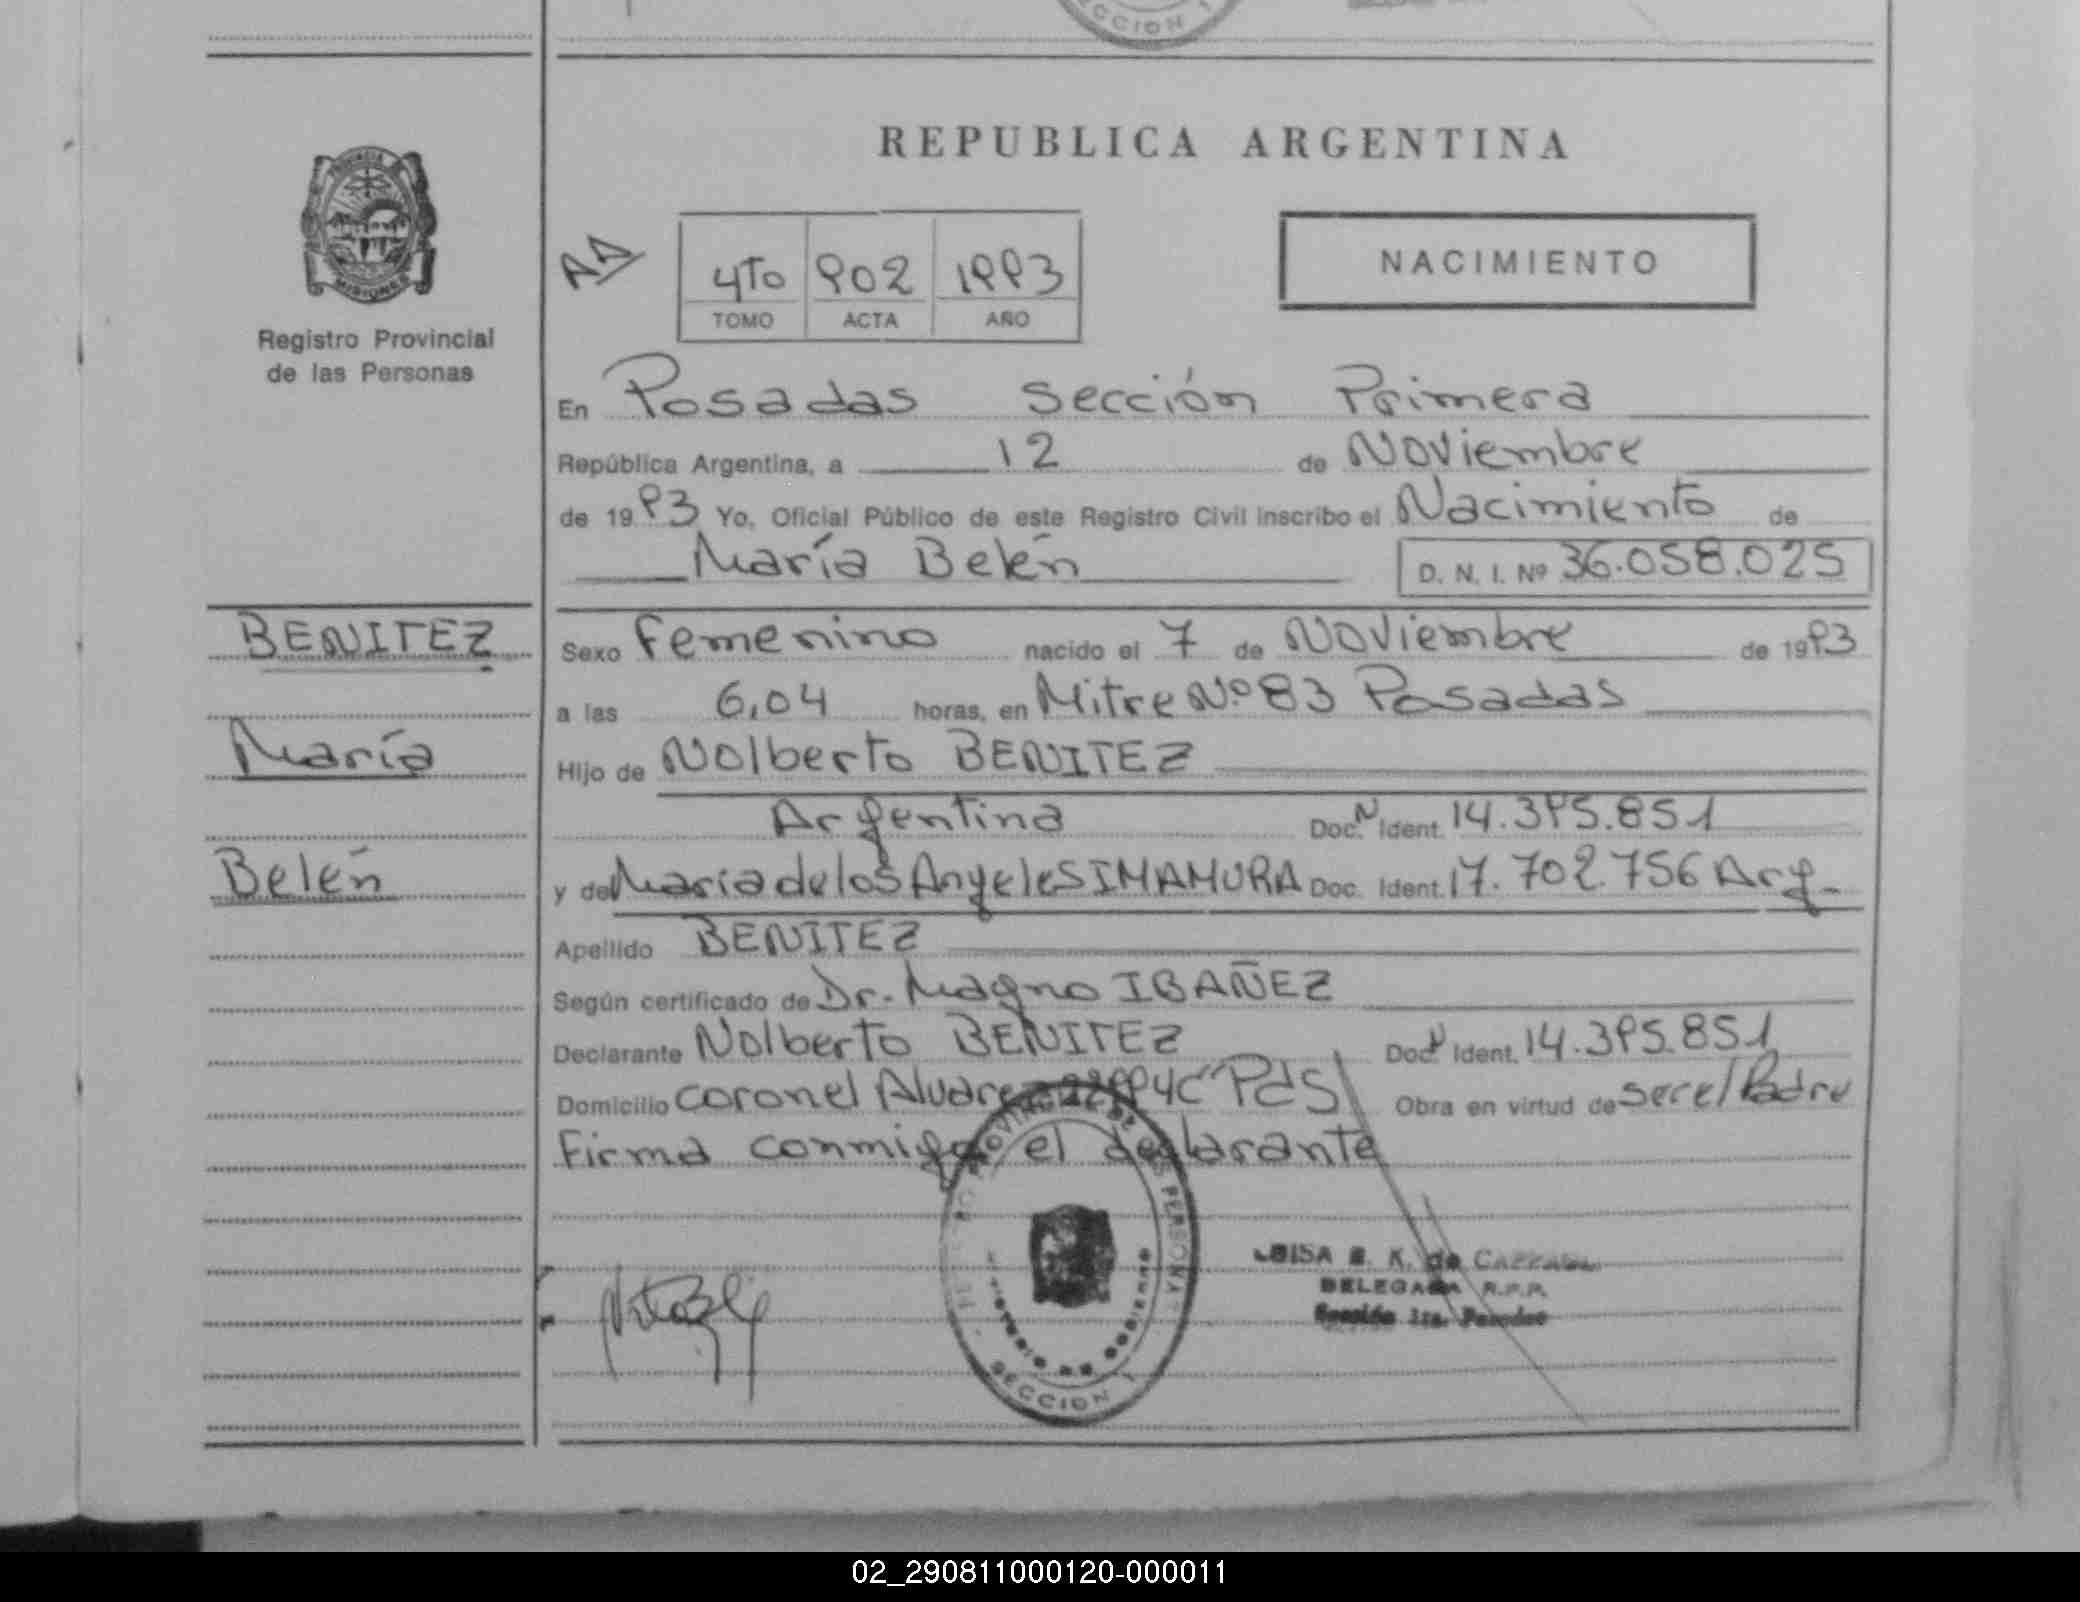 CCION 1
REPUBLICA ARGENTINA
PROVINCIA
MISIONES
Registro Provincial
de las Personas
AD
4To 902 1993
TOMO ACTA AÑO
NACIMIENTO
En Posadas Sección Primera
República Argentina, a 12 de Noviembre
de 1993 Yo, Oficial Público de este Registro Civil inscribo el Nacimiento de
María Belén D. N. I. Nº 36.058.025
BENITEZ
María
Belén
Sexo Femenino nacido el 7 de Noviembre de 1993
a las 6,04 horas, en Mitre Nº 83 Posadas
Hijo de Nolberto BENITEZ
Argentina Doc. N Ident. 14.395.851
y de Maria de los Angeles IMAMURA Doc. Ident. 17.702.756 Arg.
Apellido BENITEZ
Según certificado de Dr. Magno IBAÑEZ
Declarante Nolberto BENITEZ Doc. N Ident. 14.395.851
Domicilio Coronel Alvarez Pds Obra en virtud de ser el Padre
Firma conmigo el declarante
REGISTRO PROVINCIAL DE LAS PERSONAS
MINISTERIO DE GOBIERNO
SECCION 1
LUISA E. K. de
DELEGADA R.P.P.
Sección 1ra. Posadas
02_290811000120-000011